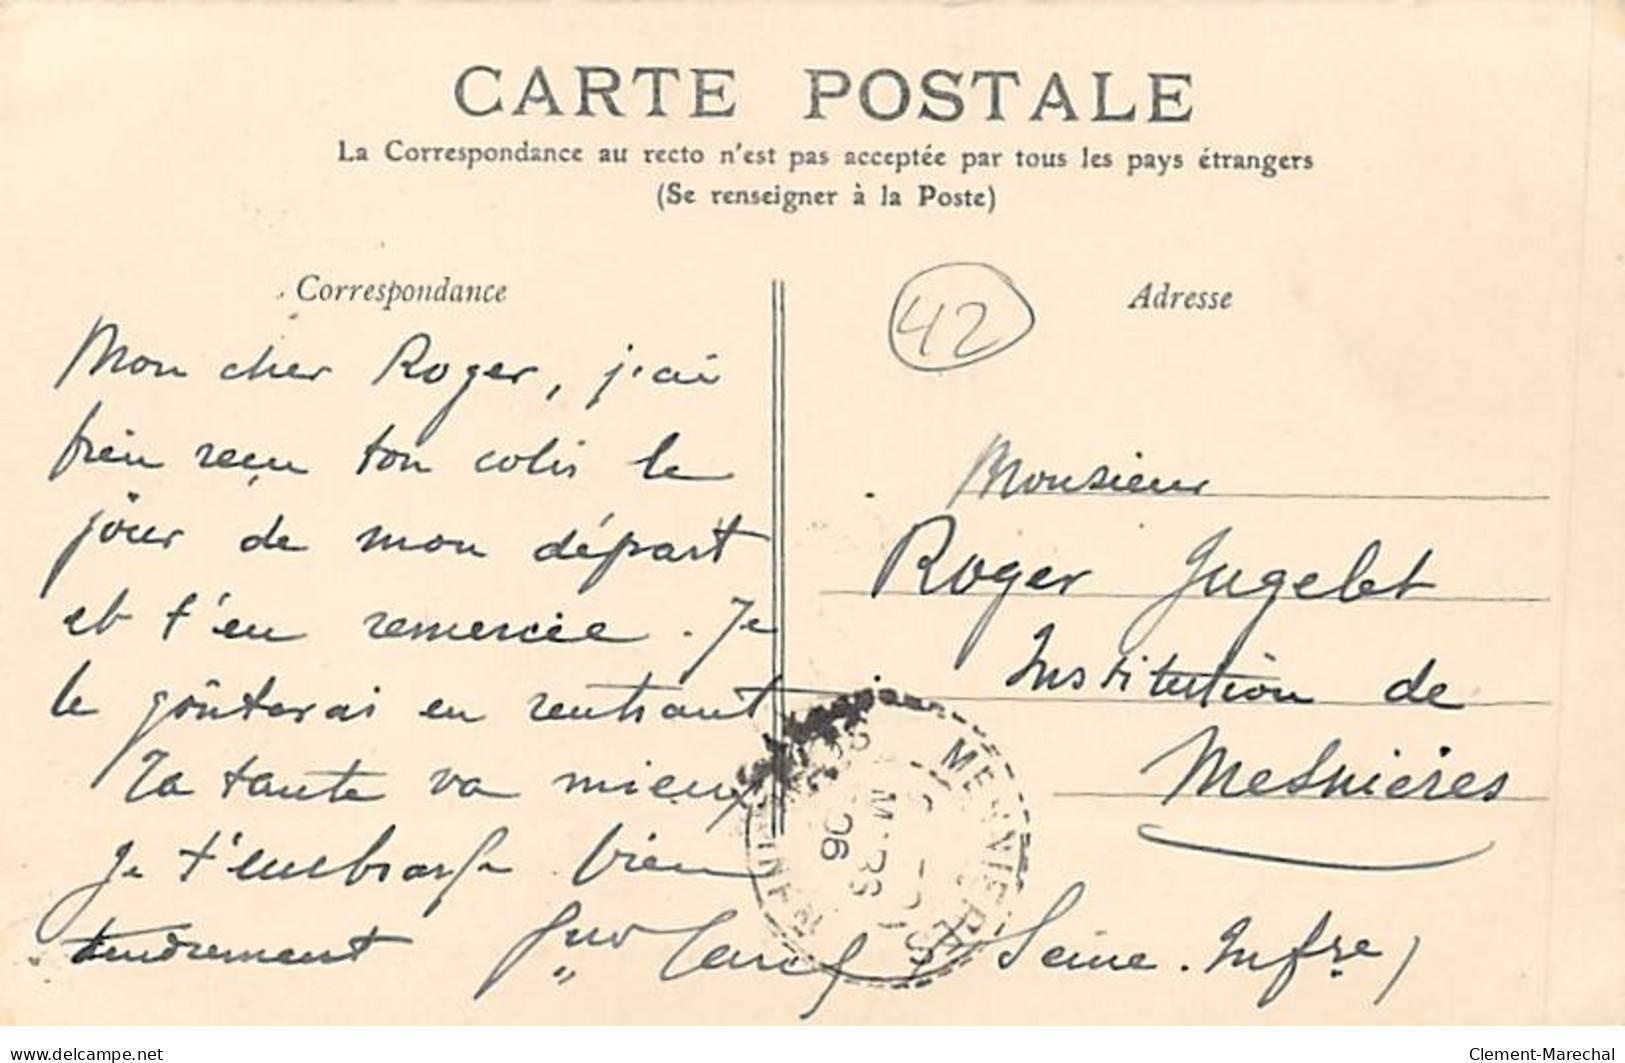 CARTE POSTALE
La Correspondance au recto n'est pas acceptée par tous les pays étrangers
(Se renseigner à la Poste)
Correspondance
Mon cher Roger, j'ai
bien reçu ton colis le
jour de mon départ
et t'en remercie. Je
le goûterai en rentrant
Ta tante va mieux
Je t'embrasse bien
tendrement
42
Adresse
Monsieur
Roger Jugelet
Institution de
Mesnières
(Seine. Infre)
MESNIERES
MARS
06
www.delcampe.net
Clement-Marechal